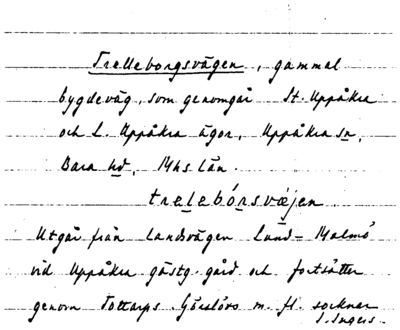 Trelleborgsvägen, gammal
bygdeväg, som genomgår St. Uppåkra
och L. Uppåkra ägor, Uppåkra sn,
Bara hd, Mhs län.
trelebórsvæjen
Utgår från landsvägen Lund-Malmö
vid Uppåkra gästg.gård och fortsätter
genom Tottarps, Görslövs m. fl. socknar
I. Ingers.